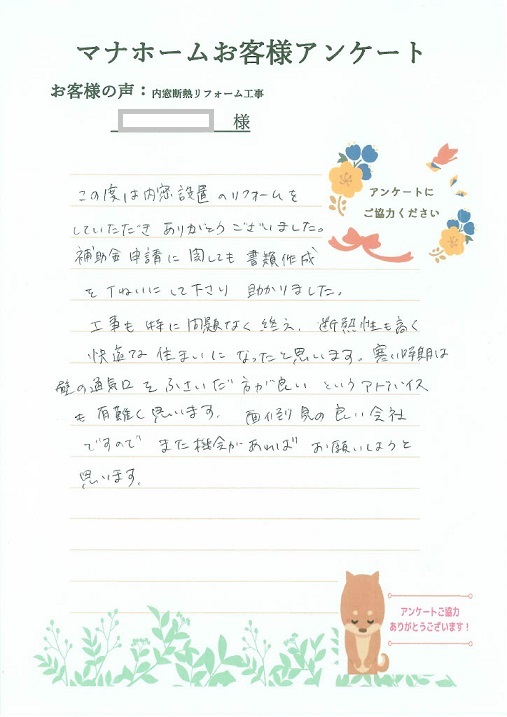 マナホームお客様アンケート
お客様の声：内窓断熱リフォーム工事
様
アンケートに
ご協力ください
この度は内窓設置のリフォームを
していただき ありがとうございました。
補助金申請に関しても書類作成
をていねいにして下さり 助かりました。
工事も特に問題なく終え、断熱性も高く
快適な住まいになったと思います。寒い時期は
壁の通気口をふさいだ方が良い というアドバイス
も有難く思います。面倒見の良い会社
ですので また機会があれば お願いしようと
思います。
アンケートご協力
ありがとうございます！